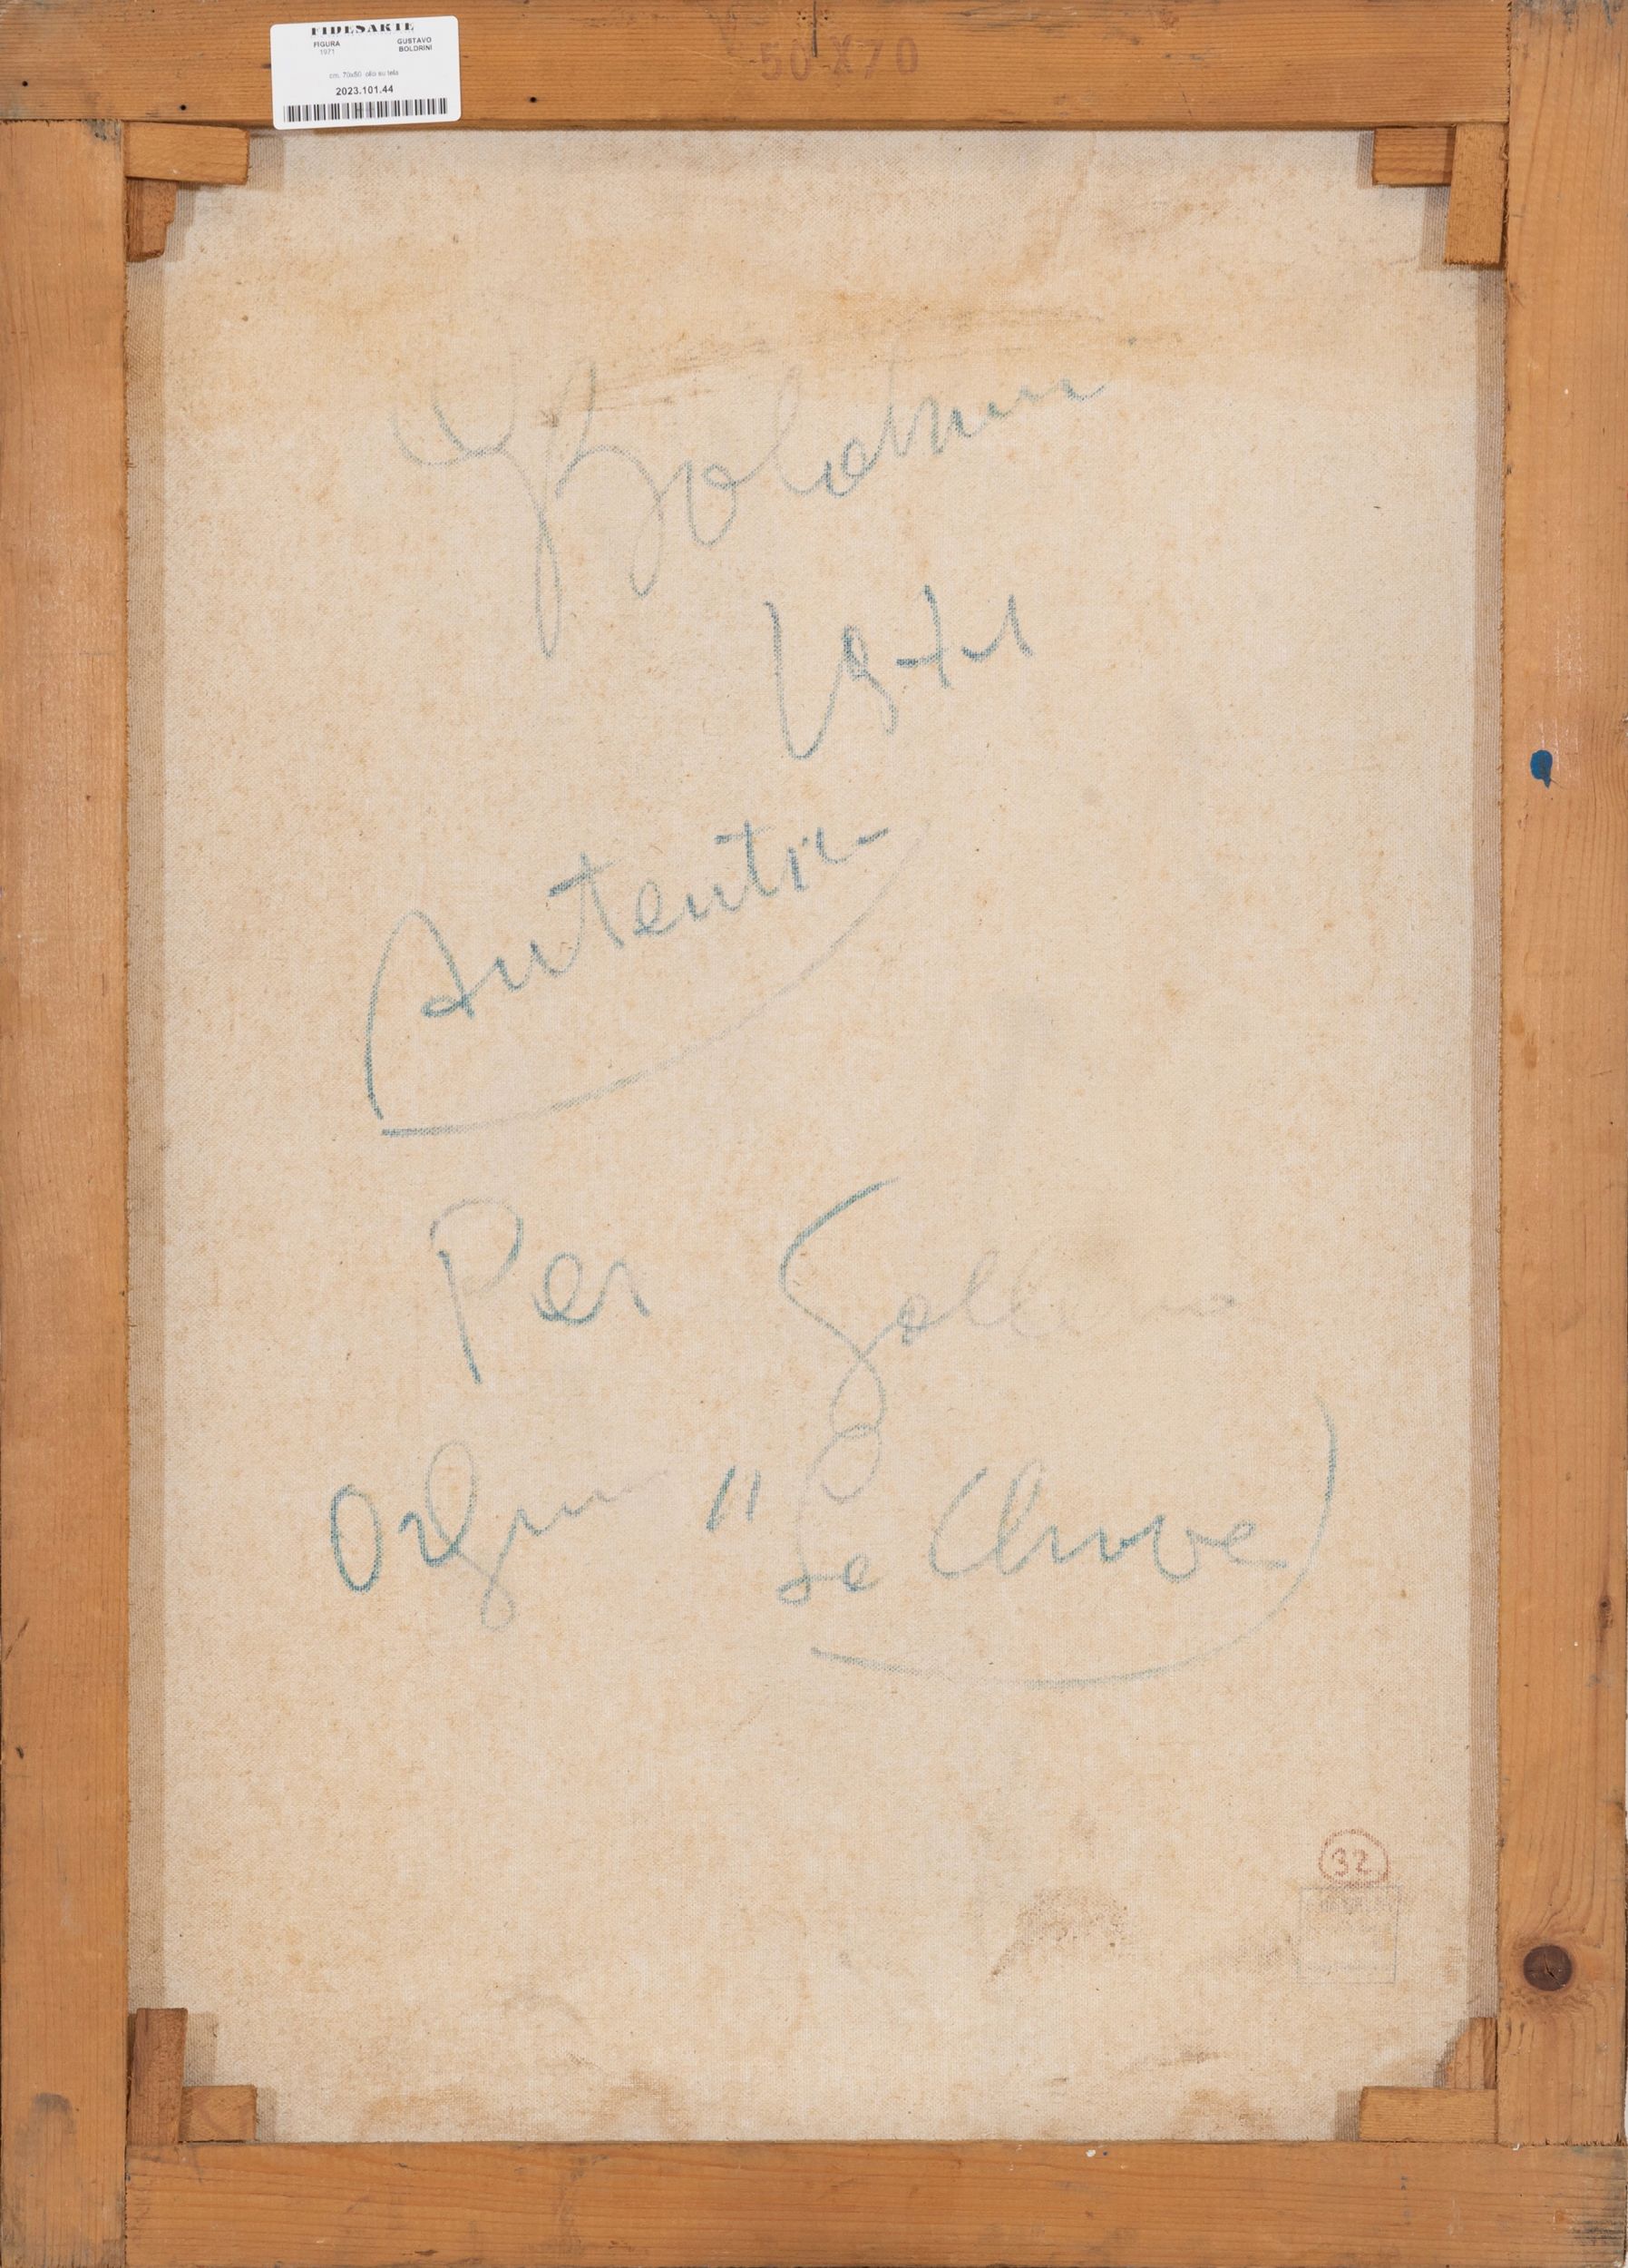 FIDESARTE
FIGURA GUSTAVO
1971 BOLDRINI
cm. 70x50 olio su tela
2023.101.44
50 X 70
GBoldrini
1971
Autentic
Per
"Le Chiave
32